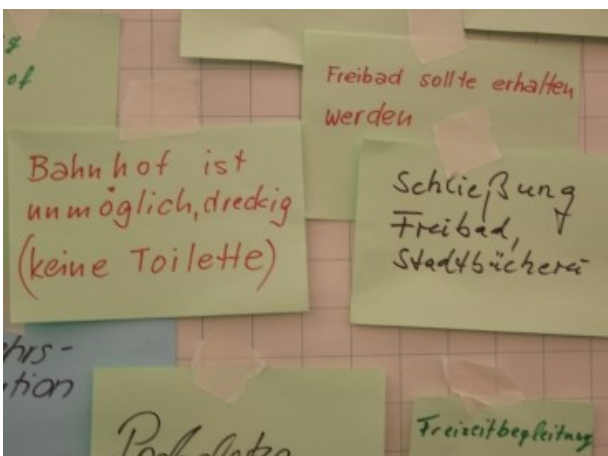 of
Freibad sollte erhalten
werden
Bahnhof ist
unmöglich, dreckig
(keine Toilette)
Schließung
Freibad,
Stadtbücherei
hrs-
tion
Freizeitbegleitung